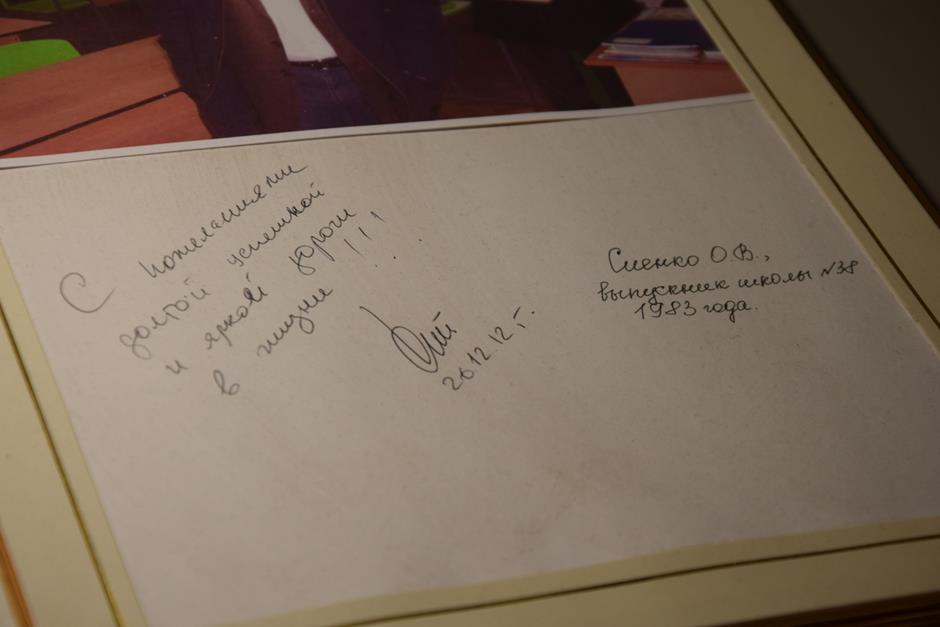 С пожеланиями
долгой успешной
и яркой дороги
в жизни !!!
26.12.12 г.
Сиенко О.В.,
выпускник школы №38
1983 года.